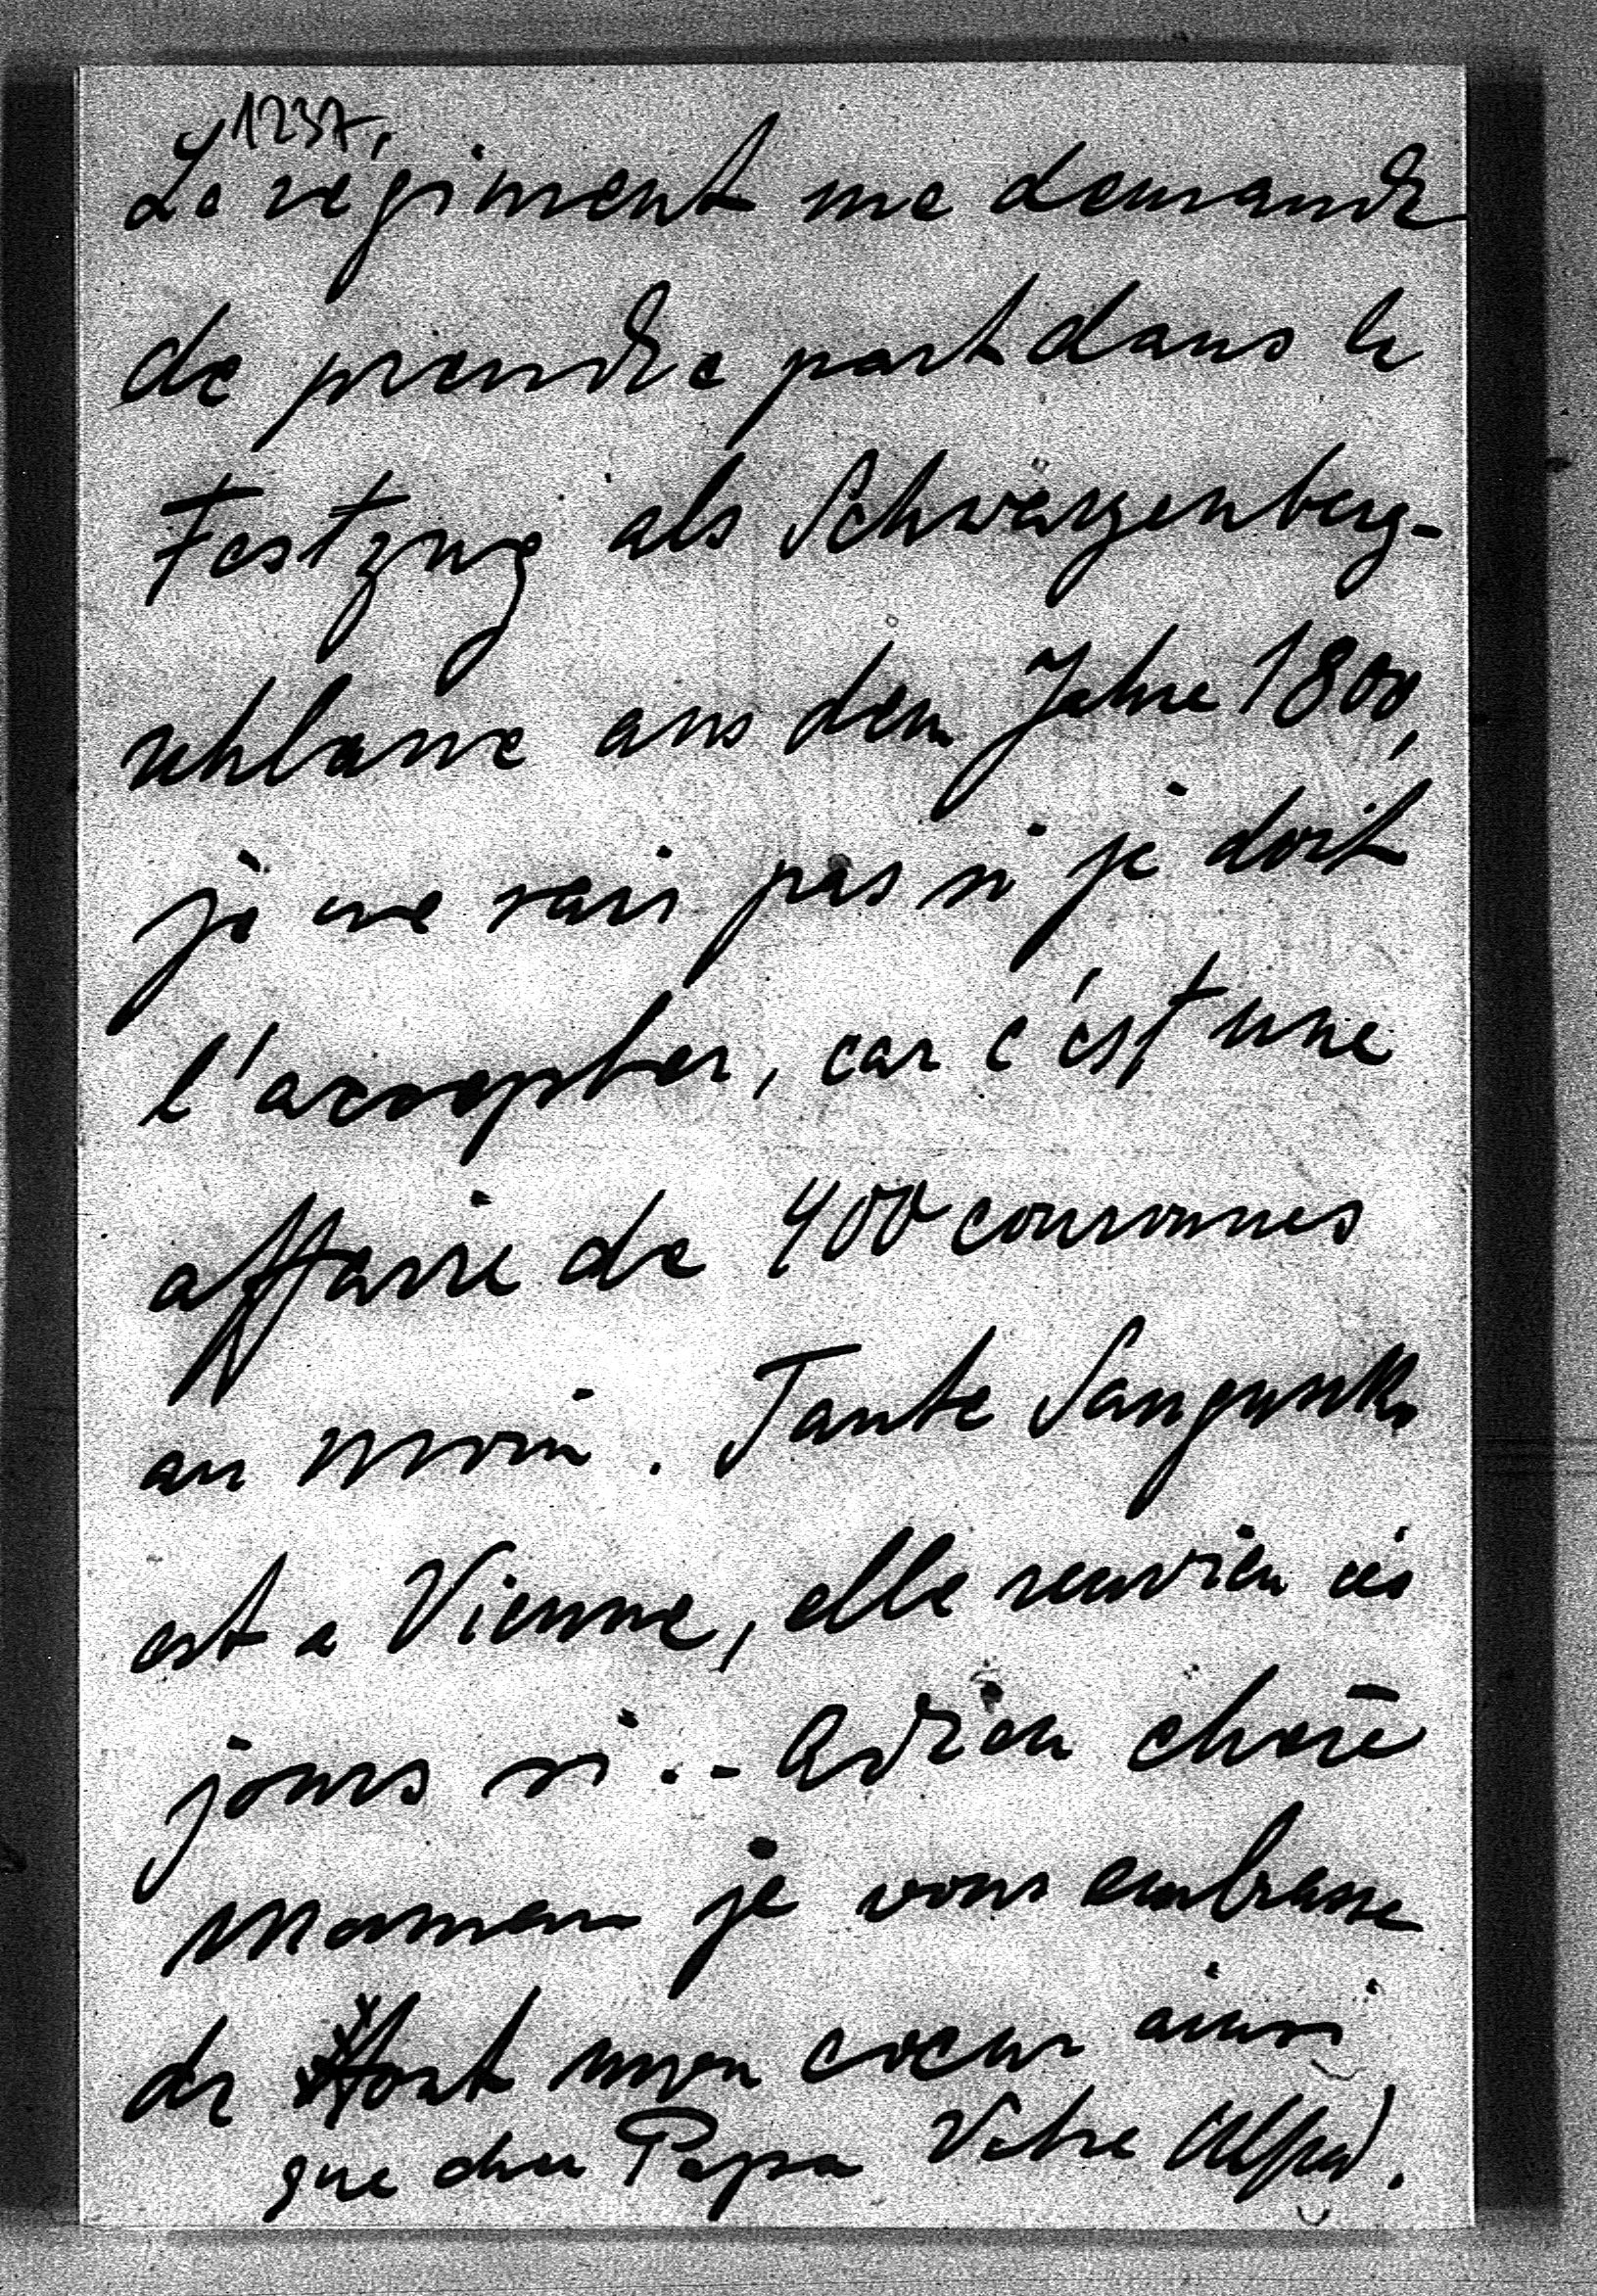 1237.
Le regiment me demande
de prendre part dans le
Festzug als Schwarzenberg-
uhlane aus dem Jahre 1800,
je ne sais pas si je doit
l'accepter, car c'est une
affaire de 400 couronnes
au moin. Tante Sanguszko
est a Vienne, elle revien ces
jours si .- Adieu chere
Maman je vous embrasse
de tout mon coeur ainsi
que cher Papa Votre Alfred.